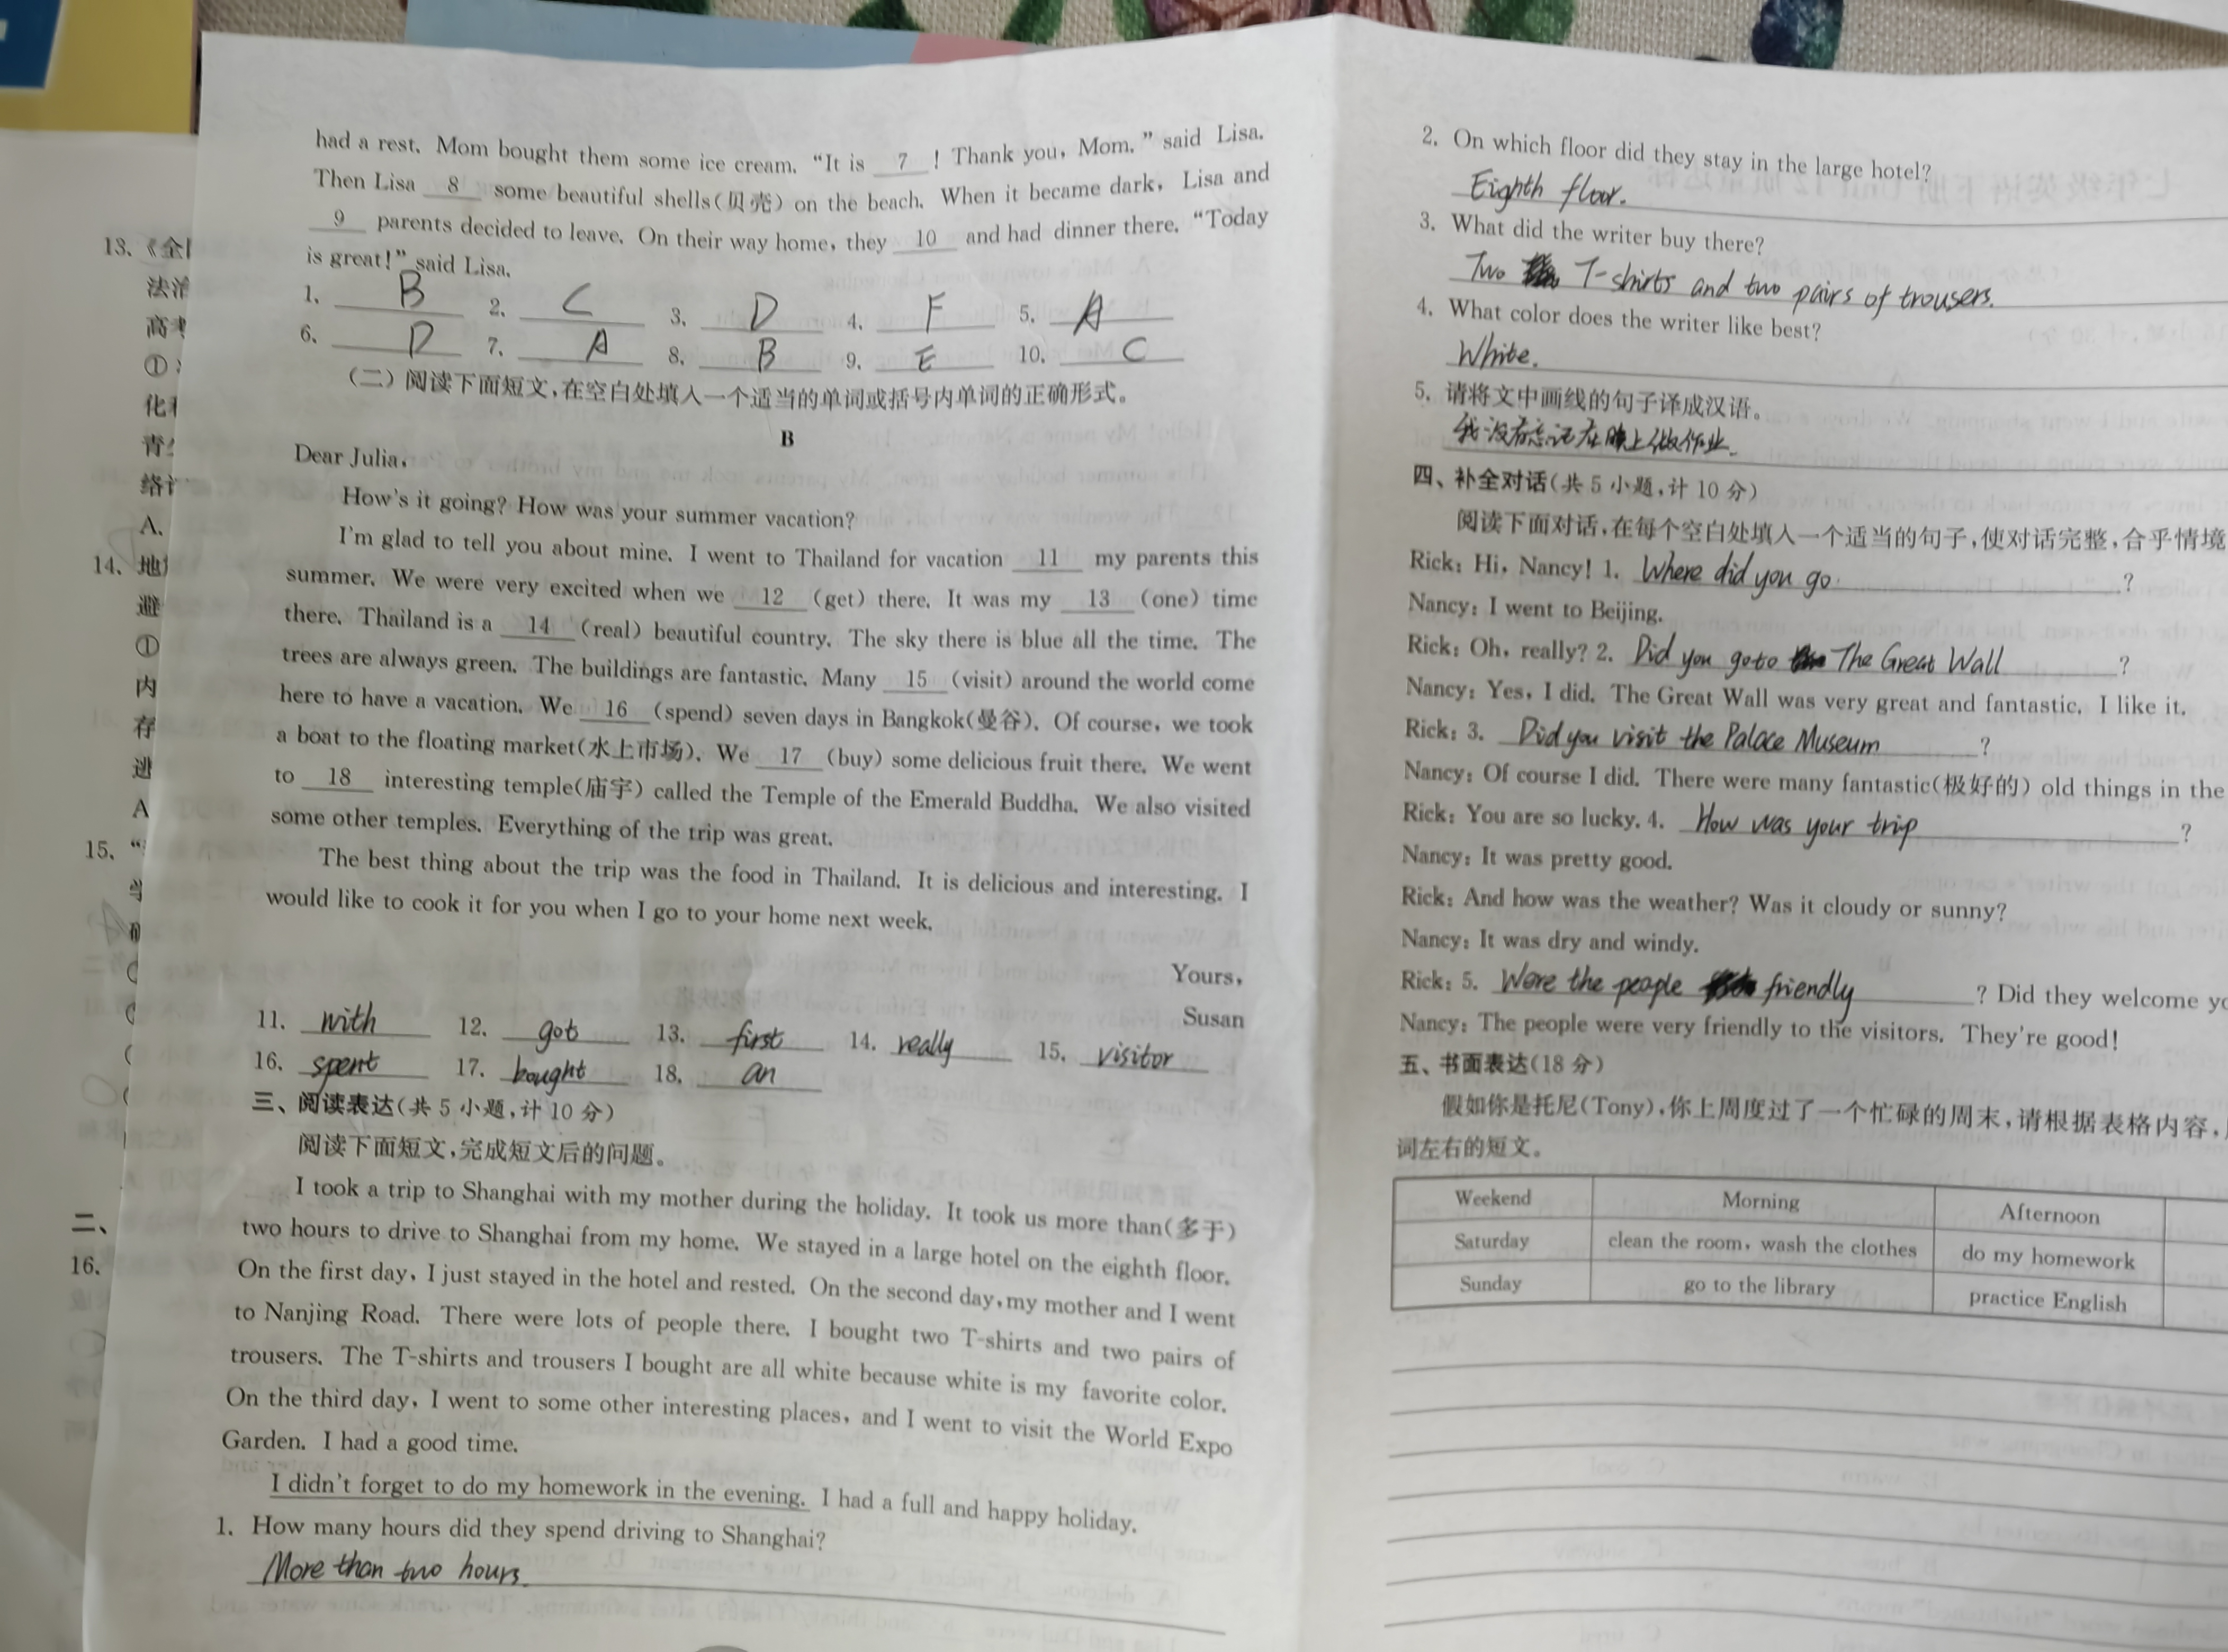 had a rest. Mom bought them some ice cream. “It is 7 ! Thank you, Mom.” said Lisa.
Then Lisa 8 some beautiful shells(贝壳) on the beach. When it became dark, Lisa and
9 parents decided to leave. On their way home, they 10 and had dinner there. “Today
is great!” said Lisa.
1. B 2. C 3. D 4. F 5. A
6. D 7. A 8. B 9. E 10. C
(二) 阅读下面短文,在空白处填入一个适当的单词或括号内单词的正确形式。
B
Dear Julia,
How's it going? How was your summer vacation?
I'm glad to tell you about mine. I went to Thailand for vacation 11 my parents this
summer. We were very excited when we 12 (get) there. It was my 13 (one) time
there. Thailand is a 14 (real) beautiful country. The sky there is blue all the time. The
trees are always green. The buildings are fantastic. Many 15 (visit) around the world come
here to have a vacation. We 16 (spend) seven days in Bangkok(曼谷). Of course, we took
a boat to the floating market(水上市场). We 17 (buy) some delicious fruit there. We went
to 18 interesting temple(庙宇) called the Temple of the Emerald Buddha. We also visited
some other temples. Everything of the trip was great.
The best thing about the trip was the food in Thailand. It is delicious and interesting. I
would like to cook it for you when I go to your home next week.
Yours,
Susan
11. with 12. got 13. first 14. really 15. visitor
16. spent 17. bought 18. an
三、阅读表达(共 5 小题,计 10 分)
阅读下面短文,完成短文后的问题。
I took a trip to Shanghai with my mother during the holiday. It took us more than(多于)
two hours to drive to Shanghai from my home. We stayed in a large hotel on the eighth floor.
On the first day, I just stayed in the hotel and rested. On the second day, my mother and I went
to Nanjing Road. There were lots of people there. I bought two T-shirts and two pairs of
trousers. The T-shirts and trousers I bought are all white because white is my favorite color.
On the third day, I went to some other interesting places, and I went to visit the World Expo
Garden. I had a good time.
I didn't forget to do my homework in the evening. I had a full and happy holiday.
1. How many hours did they spend driving to Shanghai?
More than two hours.
2. On which floor did they stay in the large hotel?
Eighth floor.
3. What did the writer buy there?
Two T-shirts and two pairs of trousers.
4. What color does the writer like best?
White.
5. 请将文中画线的句子译成汉语。
我没有忘记在晚上做作业.
四、补全对话(共 5 小题,计 10 分)
阅读下面对话,在每个空白处填入一个适当的句子,使对话完整,合乎情境
Rick: Hi, Nancy! 1. Where did you go ?
Nancy: I went to Beijing.
Rick: Oh, really? 2. Did you go to The Great Wall ?
Nancy: Yes, I did. The Great Wall was very great and fantastic. I like it.
Rick: 3. Did you visit the Palace Museum ?
Nancy: Of course I did. There were many fantastic(极好的) old things in the
Rick: You are so lucky. 4. How was your trip ?
Nancy: It was pretty good.
Rick: And how was the weather? Was it cloudy or sunny?
Nancy: It was dry and windy.
Rick: 5. Were the people friendly ? Did they welcome
Nancy: The people were very friendly to the visitors. They're good!
五、书面表达(18 分)
假如你是托尼(Tony),你上周度过了一个忙碌的周末,请根据表格内容,
词左右的短文。
Weekend Morning Afternoon
Saturday clean the room, wash the clothes do my homework
Sunday go to the library practice English
13.《全
法治
高考
①
化
青
络
A.
14. 地
避
①
内
存
进
A
15. “
二、
16.